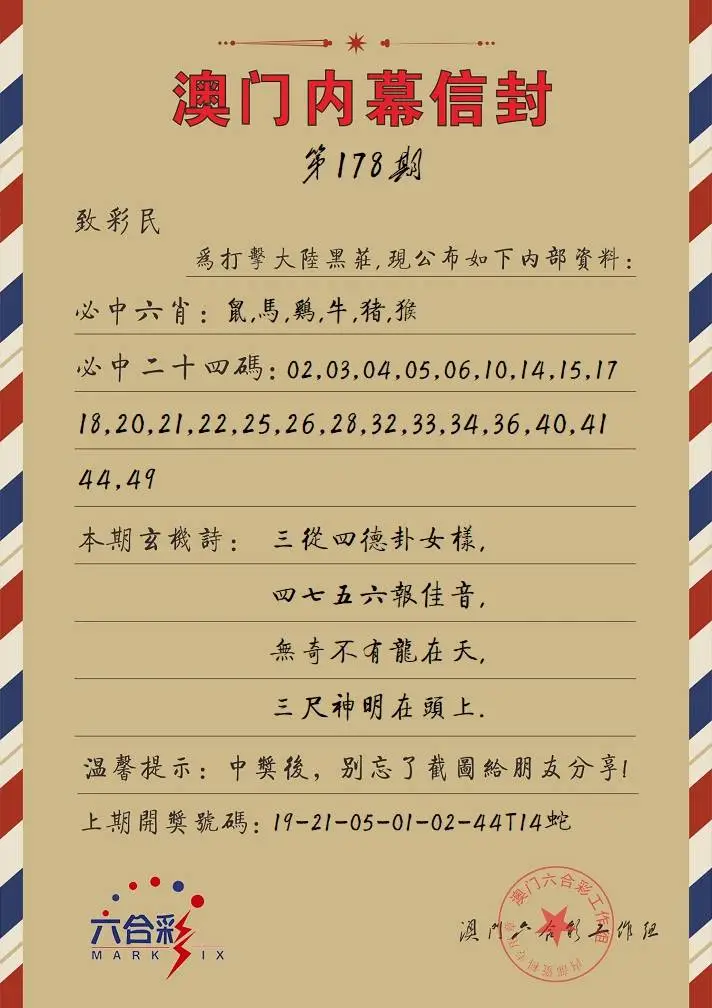 澳门内幕信封
第178期
致彩民
爲打擊大陸黑莊,現公布如下内部資料:
必中六肖:鼠,馬,鷄,牛,猪,猴
必中二十四碼:02,03,04,05,06,10,14,15,17
18,20,21,22,25,26,28,32,33,34,36,40,41
44,49
本期玄機詩: 三從四德卦女樣,
四七五六報佳音,
無奇不有龍在天,
三尺神明在頭上.
温馨提示:中獎後,别忘了截圖給朋友分享!
上期開獎號碼:19-21-05-01-02-44T14蛇
六合彩
MARK SIX
澳门六合彩工作组
澳门六合彩工作组
内部资料专用章